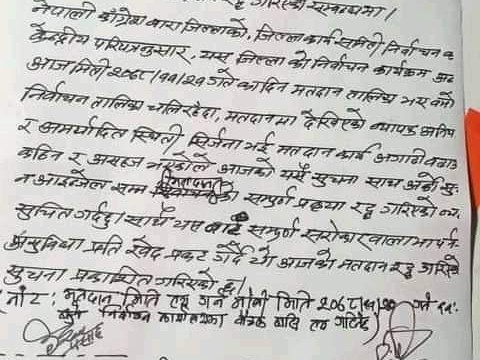 गरिएको सम्बन्धमा।
नेपाली काँग्रेस बारा जिल्लाको, जिल्ला कार्य समिती निर्वाचन
केन्द्रीय परिपत्रनुसार, यस जिल्ला को निर्वाचन कार्यक्रम
आज मिती २०७८/११/२१ गतेका दिन मतदान तालिम भए बमो
निर्वाचन तालिका चलिरहेदा, मतदानमा देखिएको व्यापक
र अमर्यादित स्थिती सिर्जना भई मतदान कार्य अगाडी बढाउ
कठिन र असहज भएकोले आजको यसै सुचना साथ अर्को सु
न आइन्जेल सम्म को सम्पुर्ण प्रकृया रद्द गरिएको
सुचित गर्दछु। साथै यस बाट सम्पुर्ण सरोकारवालामा पर्न
असुविधा प्रति खेद प्रकट गर्दै आजको मतदान रद्द गरिएको
सुचना प्रकाशित गरिएको छ।
(नोट: मतदान मिति तय गर्न भोली मिति २०७८/११/
निर्वाचन कार्यालयका बैठक बाट तय गरिनेछ)